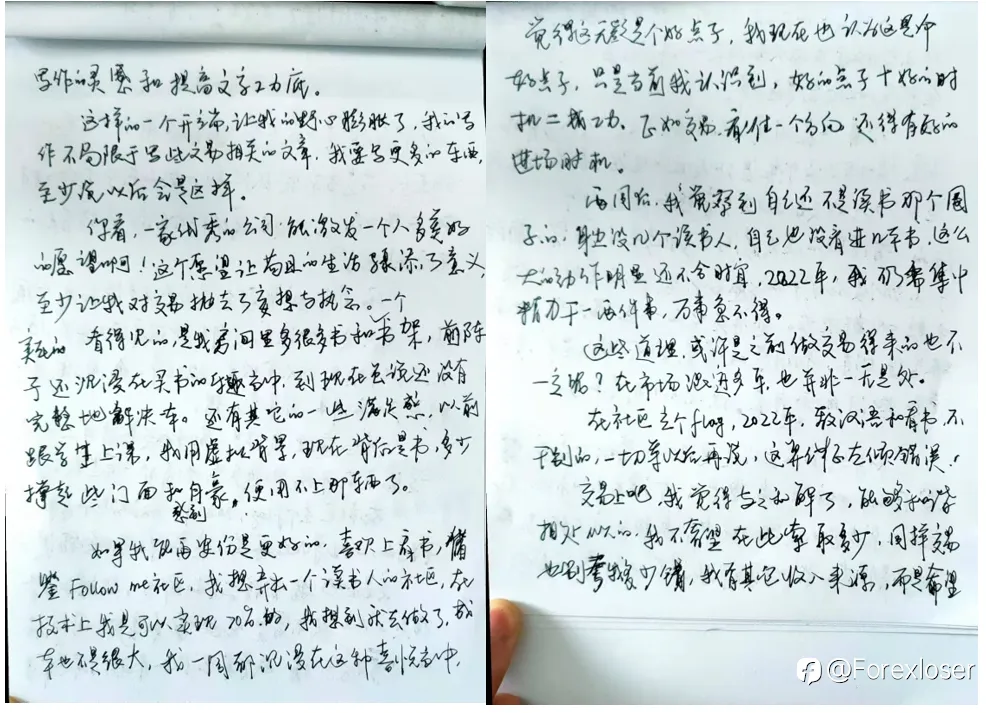 写作的灵感和提高文字功底。
这样的一个开端，让我的野心膨胀了，我的写
作不局限于写些交易相关的文章，我要写更多的东西，
至少说以后会是这样。
你看，一家优秀的公司能激发一个人多美好
的愿望啊！这个愿望让苟且的生活添了意义，
至少让我对交易抛去了妄想与执念。一个
真正的 看得见的，是我房间里多很多书和书架，前阵
子还沉浸在买书的乐趣之中，到现在去说还没有
完整地解决。还有其它的一些满足感，以前
跟学生上课，我用虚拟背景，现在背后是书，多少
撑起些门面和自豪。便用不上那东西了。
感到
如果我说两安份是更好的，喜欢上看书，借
鉴Follow me社区，我想弄出一个读书人的社区，在
技术上我是可以实现70%的，我想到就去做了，成
本也不是很大，我一周都沉浸在这种喜悦之中，
觉得这无疑是个好点子，我现在也认为这是个
好点子，只是当前我认识到，好的点子+好的时
机=成功。正如交易，看住一个方向还得有好的
进场时机。
两周后，我觉察到自己还不是读书那个圈
子的，身边没几个读书人，自己也没看进几本书，这么
大的动作明显还不合时宜，2022年，我仍需集中
精力干一两件事，万事急不得。
这些道理，或许是之前做交易得来的也不
一定呢？在市场混迹多年，也并非一无是处。
在社区立个flag，2022年，致汉语和看书，不
干别的，一切等以后再说，这算纠正左倾错误！
交易上吧，我觉得与之和解了，能够和谐
相处似的，我不奢望在此索取多少，同样交易
也别我多少错，我有其它收入来源，而是希望
@Forexloser